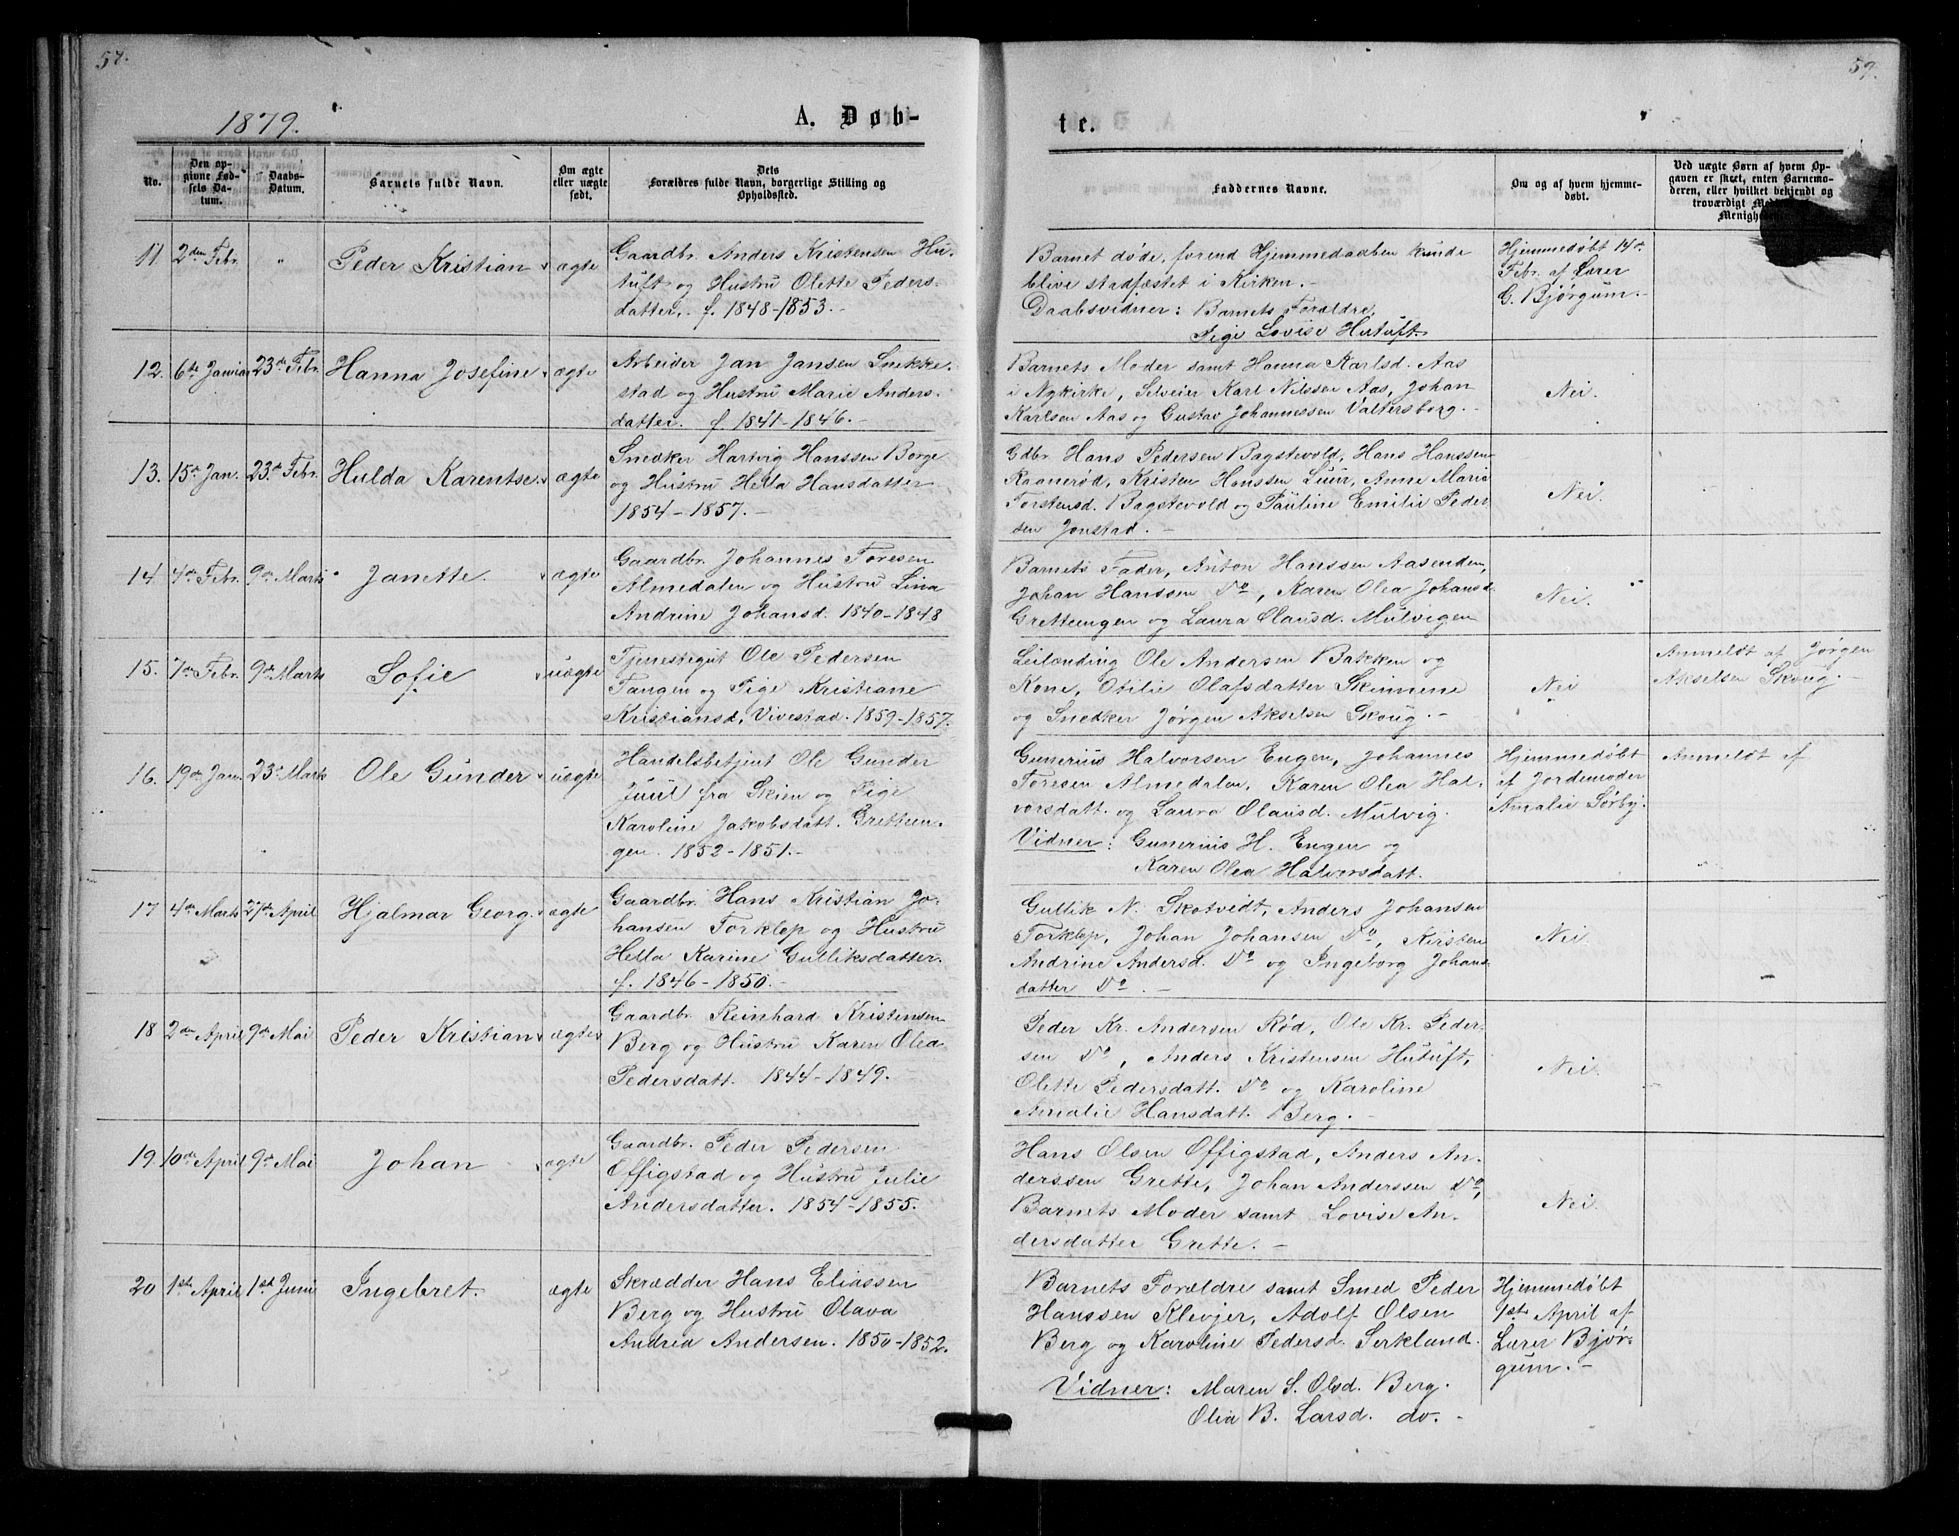 57.
59.
1879.
A. Døb-
te.
No.
Den op-
givne Fød-
sels Da-
tum.
Daabs-
Datum.
Barnets fulde Navn.
Om ægte
eller uægte
født.
Dets
Forældres fulde Navn, borgerlige Stilling og
Opholdssted.
Faddernes Navne.
Om og af hvem hjemme-
døbt.
Ved uægte Børn af hvem Op-
gaven er sket, enten Barnemo-
deren, eller hvilket bekjendt og
troværdigt Med
Menigh
11 2den Febr. " Peder Kristian ægte
Gaardbr. Anders Kristensen Hu-
tuft og Hustru Olette Peders-
datter. f. 1848-1853.-
Barnet døde, forend Hjemmedaaben kunde
blive stadfæstet i Kirken.-
Daabsvidner: Barnets Forældre,
Pige Lovise Hutuft.
Hjemmedøbt 14de
Febr. af Lærer
G. Bjørgum.-
12. 6te Januar 23de Febr. Hanna Josefine ægte
Arbeider Jan Jansen Snekke-
stad og Hustru Marie Anders-
datter. f 1841-1846.-
Barnets Moder samt Hanna Karlsd. Aas
i Nykirke, Selveier Karl Nilssen Aas, Johan
Karlsen Aas og Gustav Johannessen Valtersborg.-
Nei.
13. 15de Jan. 23de Febr. Hulda Karentse. ægte
Snedker Hartvig Hanssen Borge
og Hustru Hella Hansdatter
1854-1857.-
Gdbr. Hans Pedersen Bagstevold, Hans Hanssen
Raanerød, Kristen Hanssen Luur, Anne Maria
Torstensd. Bagstevold og Pauline Emilie Peder-
sen Jonstad.-
Nei.
14. 4de Febr. 9de Marts Janette. ægte
Gaardbr. Johannes Toresen
Almedalen og Hustru Lina
Andrine Johansd. 1840-1848
Barnets Fader, Anton Hanssen Aasenden,
Johan Hanssen Do, Karen Olea Johansd.
Gretteengen og Laura Olausd. Mulvigen
Nei.
15. 7de Febr. 9de Marts Sofie uægte
Tjenestegut Ole Pedersen
Tangen og Pige Kristiane
Kristiansd. Vivestad. 1859-1857.
Leilending Ole Andersen Bakken og
Kone, Otilie Olafsdatter Skinnene
og Snedker Jørgen Akselsen Skoug.-
Nei
Anmeldt af Jørgen
Akselsen Skoug.-
16. 19de Jan. 23de Marts Ole Gunder uægte
Handelsbetjent Ole Gunder
Juul fra Skien og Pige
Karoline Jakobsdatt. Gretteen-
gen. 1852-1851.-
Gunerius Halvorsen Engen, Johannes
Toresen Almedalen, Karen Olea Hal-
vorsdatt. og Laura Olausd. Mulvig.
Vidner: Gunerius H. Engen og
Karen Olea Halvorsdatt.
Hjemmedøbt
af Jordemoder
Amalie Sørby.
Anmeldt af
17 4de Marts 27de April Hjalmar Georg. ægte
Gaardbr. Hans Kristian Jo-
hansen Torklep og Hustru
Hella Karine Gulliksdatter.
f. 1846-1850.-
Gullik N. Skotvedt, Anders Johansen
Torklep, Johan Johansen Do, Kirsten
Andrine Andersd. Do og Ingeborg Johans-
datter Do.-
Nei.
18 2den April 9de Mai Peder Kristian ægte
Gaardbr. Reinhard Kristensen
Berg og Hustru Karen Olea
Pedersdatt. 1844-1849.
Peder Kr. Andersen Rød, Ole Kr. Peder-
sen Do, Anders Kristensen Hutuft,
Olette Pedersdatt. Do og Karoline
Amalie Hansdatt. Berg.-
Nei.
19. 10de April 9de Mai Johan ægte
Gaardbr. Peder Pedersen
Offigstad og Hustru Julie
Andersdatter. 1854-1855.
Hans Olsen Offigstad, Anders An-
derssen Grette, Johan Anderssen Do,
Barnets Moder samt Lovise An-
dersdatter Grette.-
Nei.
20 1ste April 1ste Juni Ingebret. ægte
Skrædder Hans Eliassen
Berg og Hustru Olava
Andrea Andersen. 1850-1852.
Barnets Forældre samt Smed Peder
Hanssen Klevjer, Adolf Olsen
Berg og Karoline Pedersd. Serkland.
Vidner: Maren S. Olsd. Berg.
Olea B. Larsd. do.-
Hjemmedøbt
1ste April af
Lærer Bjør-
gum.-